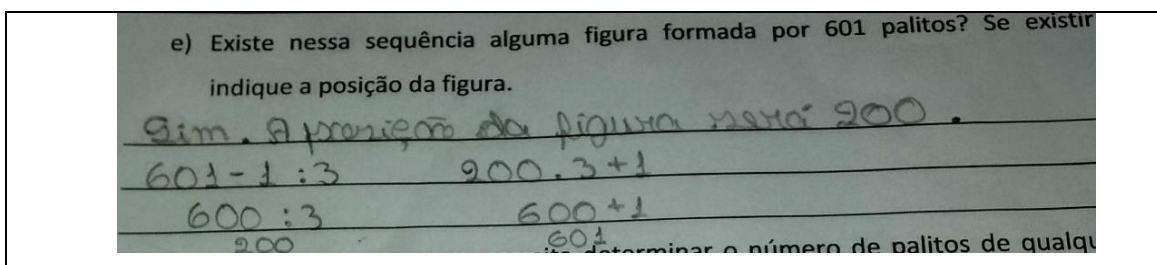 e) Existe nessa sequência alguma figura formada por 601 palitos? Se existir
indique a posição da figura.
Sim. A posição da figura será 200.
601-1:3 200.3+1
600:3 600+1
200 601
determinar o número de palitos de qualqu